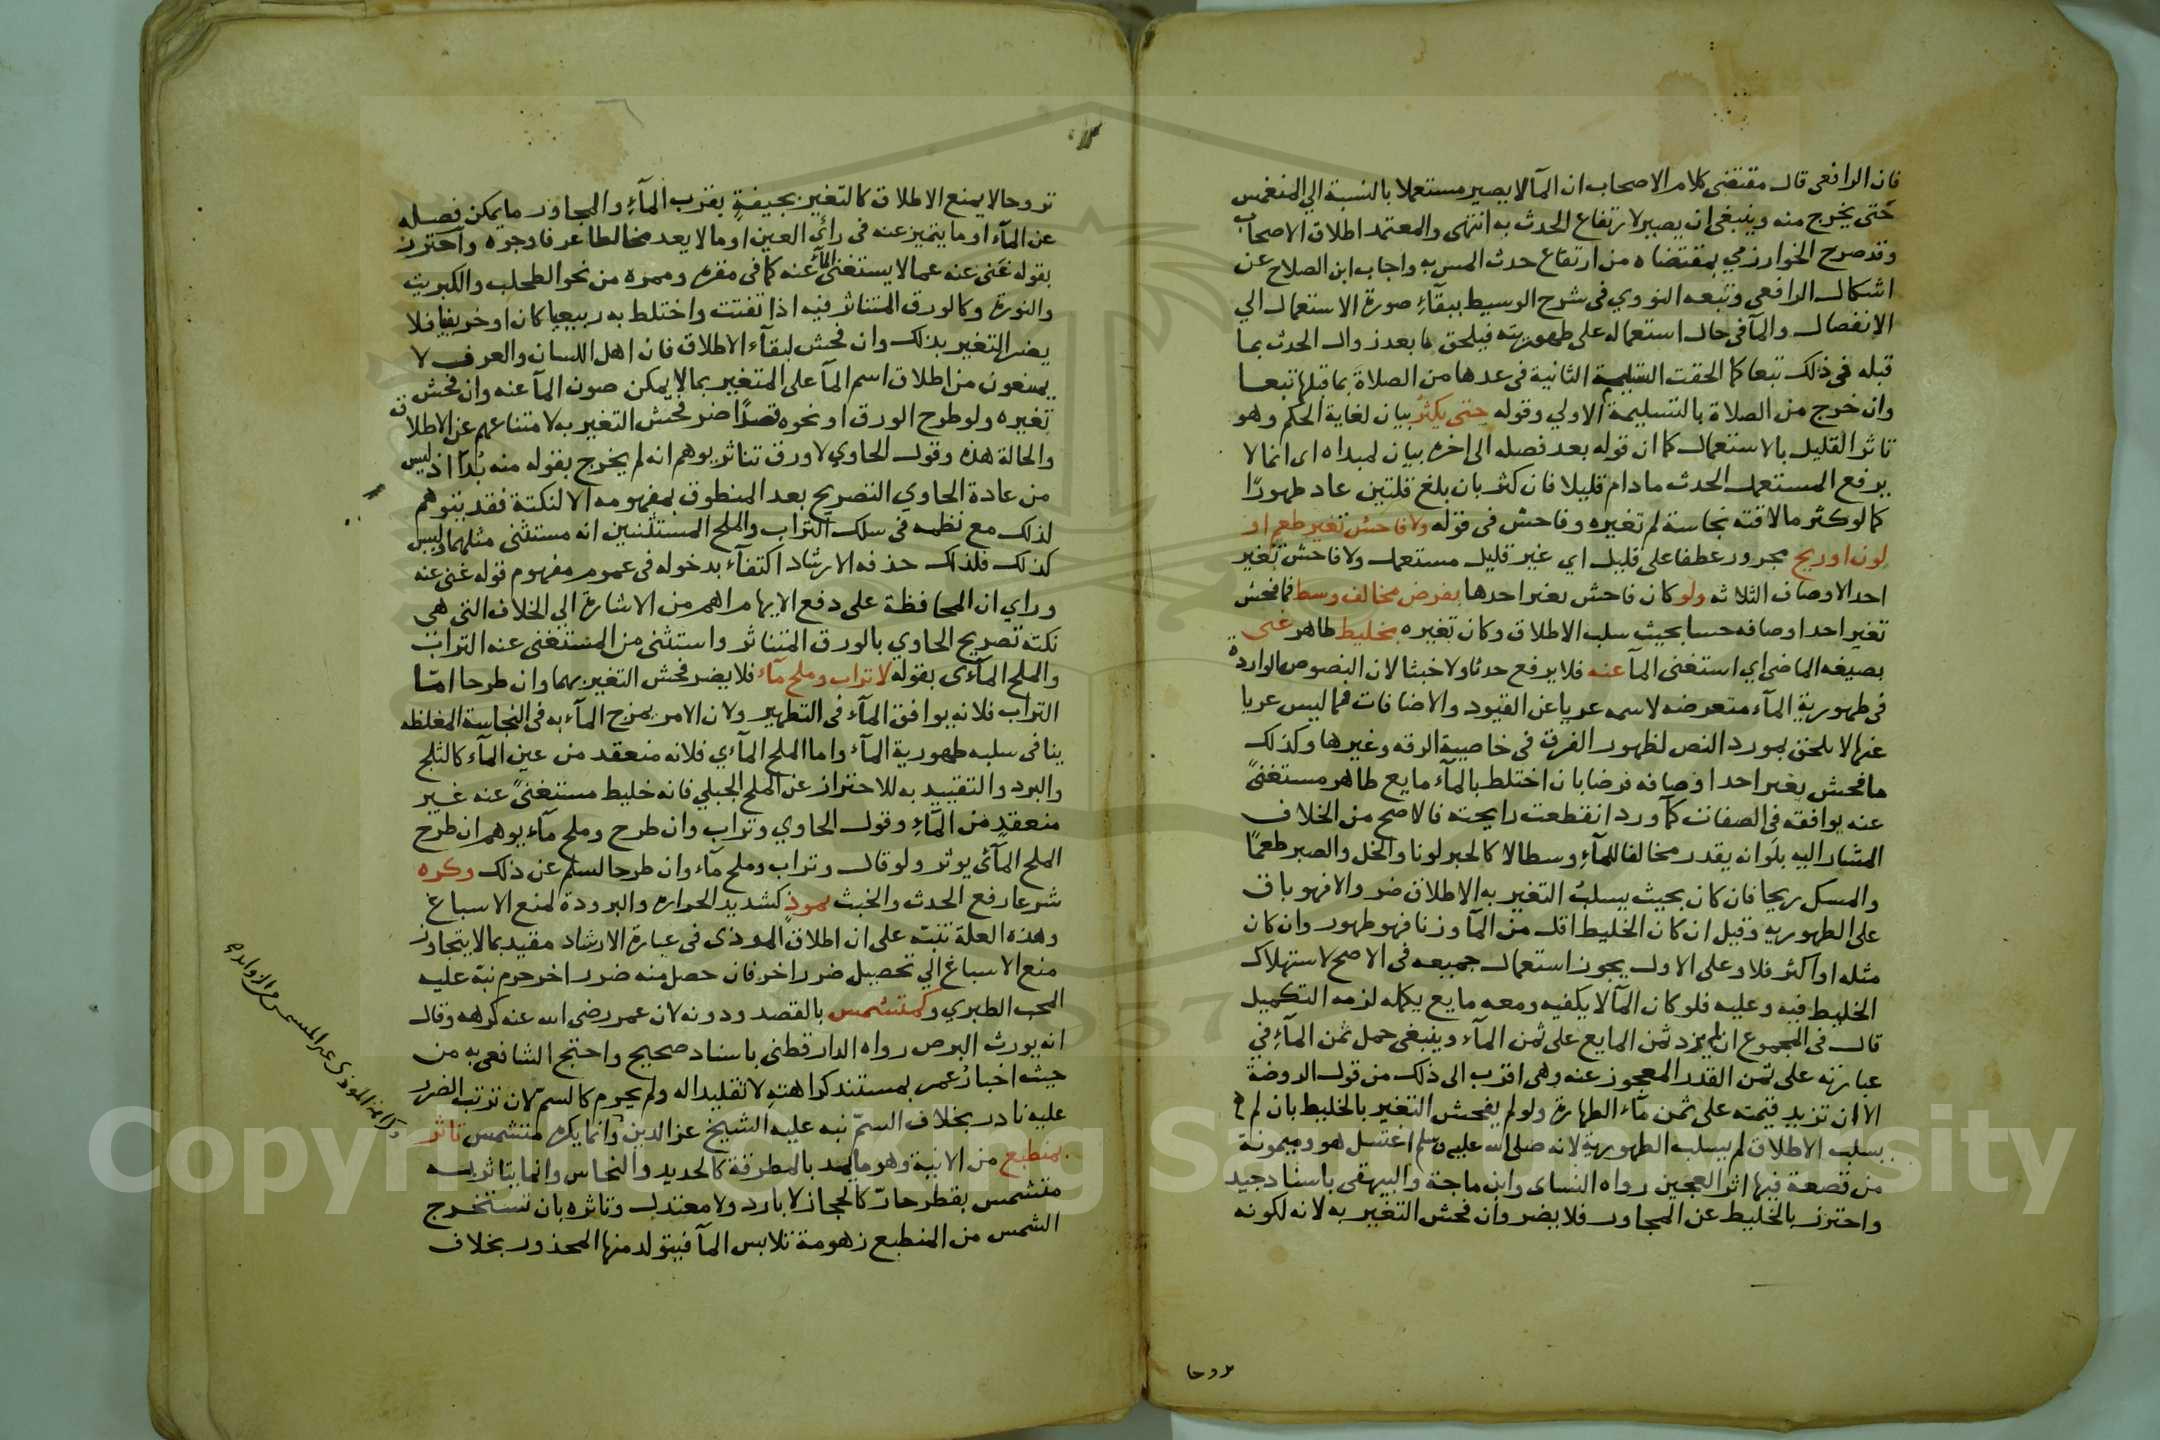 فان الرافعي قال مقتضى كلام الاصحاب ان المآ لا يصير مستعملا بالنسبة الي المنغمس
حتى يخرج منه وينبغي ان يصير لارتفاع الحدث به انتهى والمعتمد اطلاق الاصحاب
وقد صرح الخوارزمي بمقتضاه من ارتفاع حدث المس به واجاب ابن الصلاح عن
اشكال الرافعي وتبعه النووي في شرح الوسيط ببقآء صورة الاستعمال الي
الانفصال والمآ في حال استعماله على طهوريته فيلحق ما بعد زوال الحدث بما
قبله في ذلك تبعا كما الحقت التسليمة الثانية في عدها من الصلاة بما قبلها تبعا
وان خرج من الصلاة بالتسليمة الاولي وقوله حتى يكثر بيان لغاية الحكم وهو
تاثر القليل بالاستعمال كما ان قوله بعد فصله الى اخره بيان لمبداه اى انما لا
يرفع المستعمل الحدث ما دام قليلا فان كثر بان بلغ قلتين عاد طهورًا
كما لو كثر ما لاقته نجاسة لم تغيره وفاحش في قوله ولا فاحش تغير طعم او
لون او ريح مجرور عطفا على قليل اي غير قليل مستعمل ولا فاحش تغير
احد الاوصاف الثلاثه ولو كان فاحش تغير احدها بفرض مخالف وسط فما فحش
تغير احد اوصافه حسا بحيث سلب الاطلاق وكان تغيره بخليط طاهر غني
بصيغه الماضي اي استغنى المآ عنه فلا يرفع حدثا ولا خبثا لان النصوص الوارده
في طهورية المآء متعرضه لاسمه عريا عن القيود والاضافات فما ليس عريا
عنها لا يلحق بمورد النص لظهور الفرق في خاصية الرقه وغيرها وكذلك
ما فحش تغير احد اوصافه فرضا بان اختلط بالمآء مايع طاهر مستغنىً
عنه يوافقه في الصفات كمآ ورد انقطعت رايحته فالاصح من الخلاف
المشار اليه بلو انه يقدر مخالفا للمآء وسطا لا كالحبر لونا والخل والصبر طعمًا
والمسك ريحا فان كان بحيث يسلب التغير به الاطلاق ضر والا فهو باق
على الطهوريه وقيل ان كان الخليط اقل من المآ وزنا فهو طهور وان كان
مثله او اكثر فلا وعلى الاول يجوز استعمال جميعه في الاصح لاستهلاك
الخليط فيه وعليه فلو كان المآ لا يكفيه ومعه مايع يكمله لزمه التكميل
قال في المجموع ان لم يزد ثمن المايع على ثمن المآء وينبغي حمل ثمن المآء في
عبارته على ثمن القدر المعجوز عنه وهي اقرب الى ذلك من قول الروضة
الا ان تزيد قيمته على ثمن مآء الطهارة ولو لم يفحش التغير بالخليط بان لم
يسلب الاطلاق لم يسلب الطهورية لانه صلى الله عليه وسلم اغتسل هو وميمونة
من قصعة فيها اثر العجين رواه النساى وابن ماجة والبيهقى باسناد جيد
واحترز بالخليط عن المجاور فلا يضر وان فحش التغير به لانه لكونه
تروحا
تروحا لا يمنع الاطلاق كالتغير بجيفةٍ بقرب المآء والمجاور ما يمكن فصله
عن المآء او ما يتميز عنه في رأي العين او ما لا يعد مخالطا عرفا وجره واحترز
بقوله غنى عنه عما لا يستغني المآء عنه كما في مقره وممره من نحو الطحلب والكبريت
والنورة وكالورق المتناثر فيه اذا تفتت واختلط به ربيعيا كان او خريفيا فلا
يضر التغير بذلك وان فحش لبقآء الاطلاق فان اهل اللسان والعرف لا
يمنعون من اطلاق اسم المآ على المتغير بما لا يمكن صون المآ عنه وان فحش
تغيره ولو طرح الورق او نحوه قصدًا ضر فحش التغير به لامتناعهم عن الاطلاق
والحالة هذه وقول الحاوي لا ورق تناثر يوهم انه لم يخرج بقوله منه بُدّ اذ ليس
من عادة الحاوي التصريح بعد المنطوق بمفهومه الا لنكتة فقد يتوهم
لذلك مع نظمه في سلك التراب والملح المستثنين انه مستثنى مثلهما وليس
كذلك فلذلك حذفه الارشاد اكتفآء بدخوله في عموم مفهوم قوله غنى عنه
وراي ان المحافظة على دفع الايهام اهم من الاشارة الي الخلاف التي هي
نكته تصريح الحاوي بالورق المتناثر واستثنى من المستغنى عنه التراب
والملح المآءى بقوله لا تراب وملح مآء فلا يضر فحش التغير بهما وان طرحا امّا
التراب فلانه يوافق المآء في التطهير ولان الامر بمزج المآء به في النجاسة المغلظه
ينافى سلبه طهورية المآء واما الملح المآءي فلانه منعقد من عين المآء كالثلج
والبرد والتقييد به للاحتراز عن الملح الجبلي فانه خليط مستغنىً عنه غير
منعقدٍ من المآء وقول الحاوي وتراب وان طرح وملح مآء يوهم ان طرح
الملح المآئي يوثر ولو قال وتراب وملح مآء وان طرحا لسلم عن ذلك وكره
شرعا رفع الحدث والخبث بموذٍ كشديد الحراره والبرودة لمنع الاسباغ
وهذه العلة تنبّه على ان اطلاق الموذى في عبارة الارشاد مقيد بما لا يتجاوز
منع الاسباغ الي تحصيل ضرر اخر فان حصل منه ضرر اخر حرم نبّه عليه
المحب الطبري وكمتشمس بالقصد ودونه لان عمر رضى الله عنه كرهه وقال
انه يورث البرص رواه الدارقطنى باسناد صحيح واحتج الشافعي به من
حيث اخبار عمر بمستند كراهته لا تقليدا له ولم يحرم كالسمّ لان ترتب الضرر
عليه نادر بخلاف السمّ نبه عليه الشيخ عز الدين وانما يكره متشمس تاثر
بمنطبع من الانية وهو ما يمد بالمطرقة كالحديد والنحاس وانما يتاثر به
متشمس بقطر حارّ كالحجاز لا بارد ولا معتدل وتاثره بان تستخرج
الشمس من المنطبع زهومة تلابس المآ فيتولد منها المحذور بخلاف
Copyright © King Saud University